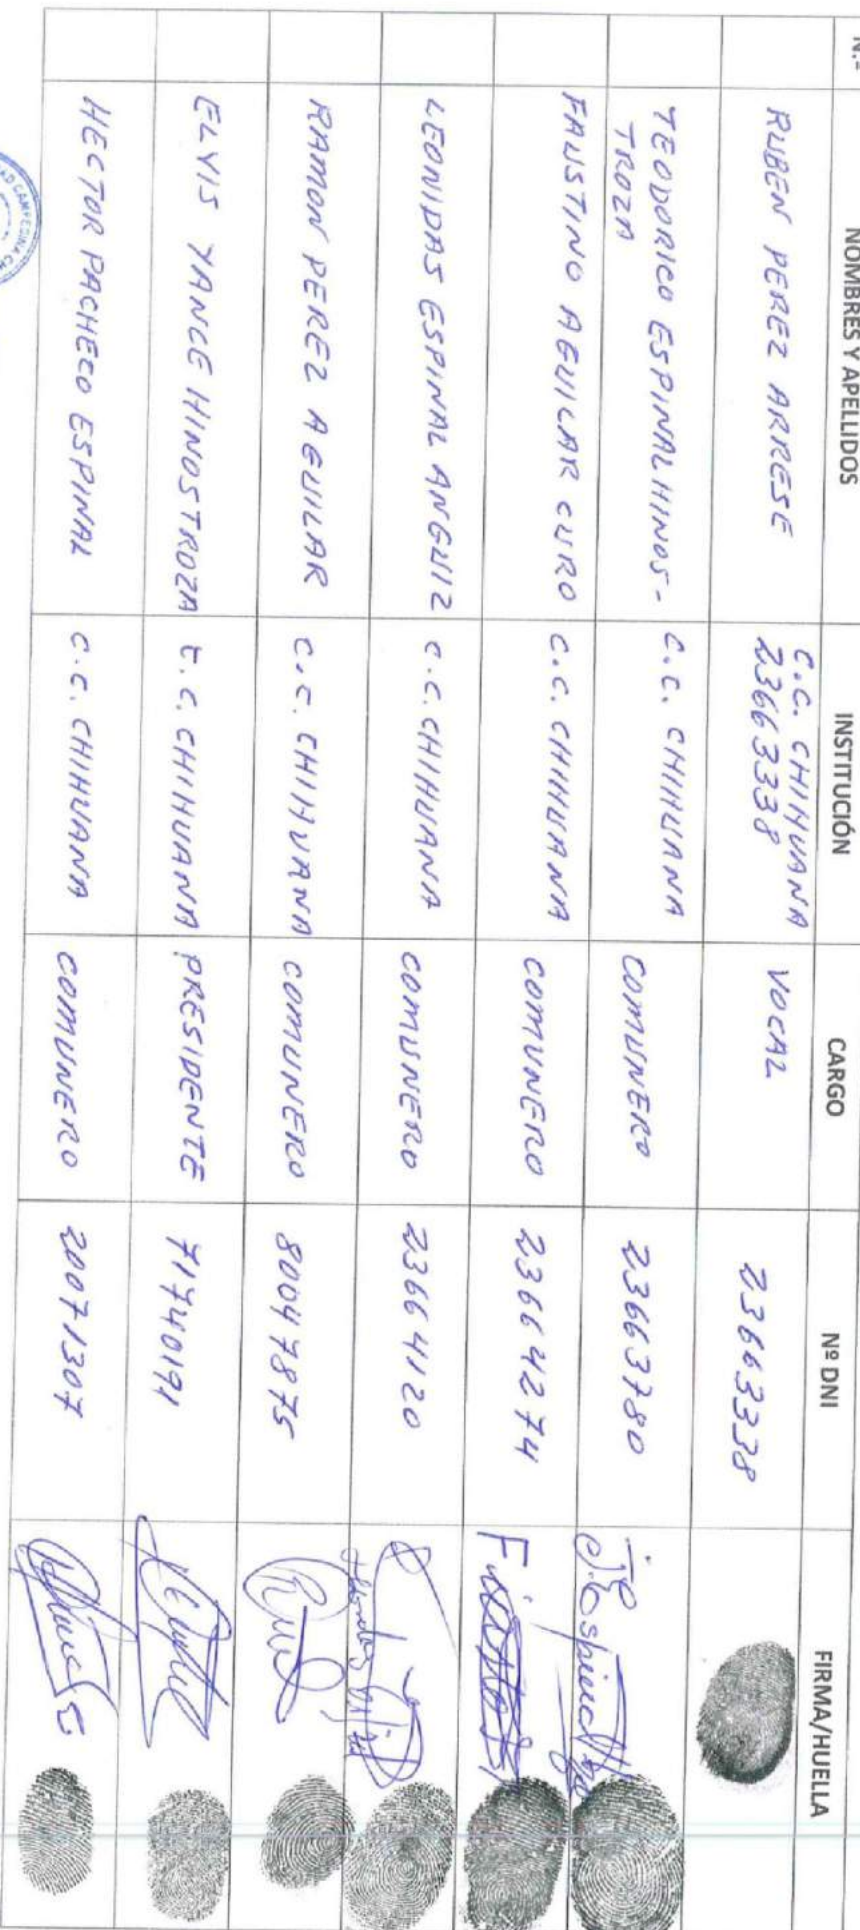 N.- NOMBRES Y APELLIDOS INSTITUCIÓN CARGO Nº DNI FIRMA/HUELLA
RUBEN PEREZ ARRESE C.C. CHIHUANA 23663338 VOCAL 23663338
TEODORICO ESPINAL HINOS- C.C. CHIHUANA COMUNERO 23663780
TROZA
FAUSTINO AGUILAR CURO C.C. CHIHUANA COMUNERO 23664274
LEONIDAS ESPINAL ANGUIZ C.C. CHIHUANA COMUNERO 23664120
RAMON PEREZ AGUILAR C.C. CHIHUANA COMUNERO 80047875
ELVIS YANCE HINOSTROZA C.C. CHIHUANA PRESIDENTE 71740191
HECTOR PACHECO ESPINAL C.C. CHIHUANA COMUNERO 20071307